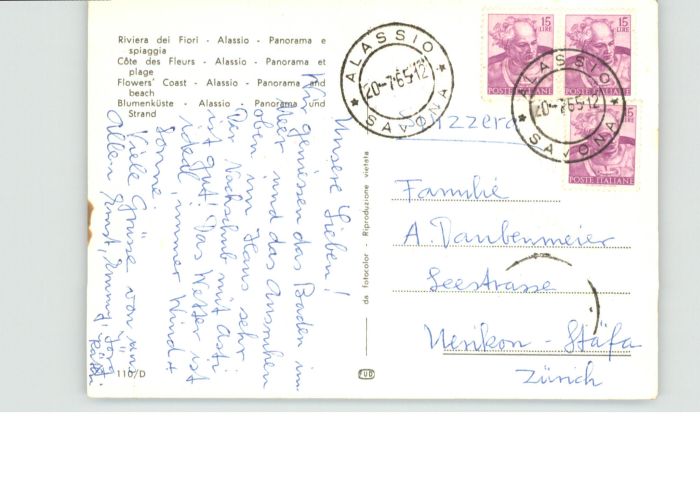 Riviera dei Fiori - Alassio - Panorama e
spiaggia
Côte des Fleurs - Alassio - Panorama et
plage
Flowers' Coast - Alassio - Panorama and
beach
Blumenküste - Alassio - Panorama und
Strand
Unsere Lieben!
Wir geniessen das Baden im
Meer und das Ausruhen
oben im Haus sehr.
Der Nachschub mit Asti
ist gut! Das Wetter ist
ideal, immer Wind +
Sonne
Viele Grüsse von uns
Allen Ernst, Emmy, Jörg
110/D
da fotocolor - Riproduzione vietata
FUD
ALASSIO
20-7-65-12
SAVONA
15
LIRE
POSTE ITALIANE
15
LIRE
POSTE ITALIANE
ALASSIO
20-7-65-12
SAVONA
15
POSTE ITALIANE
Svizzera
Familie
A. Daubenmeier
Seestrasse
Uerikon - Stäfa
Zürich